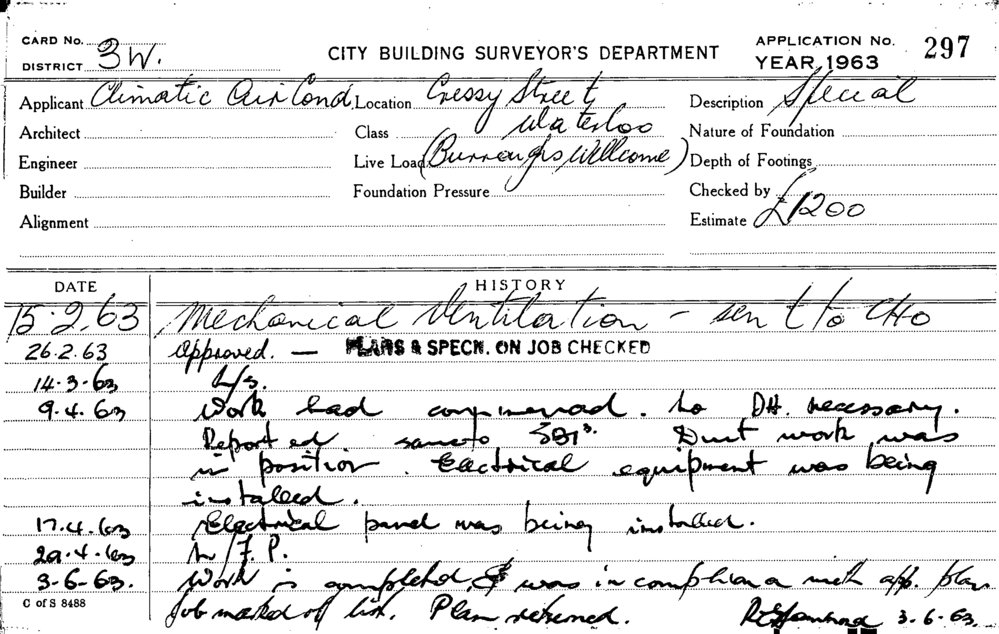 CARD No.
DISTRICT 3W.
CITY BUILDING SURVEYOR'S DEPARTMENT
APPLICATION No. 297
YEAR, 1963
Applicant Climatic Air Cond, Location Cressy Street, Description Special
Architect Class Waterloo Nature of Foundation
Engineer Live Load (Burroughs Wellcome) Depth of Footings
Builder Foundation Pressure Checked by
Alignment Estimate £1200
DATE HISTORY
15.2.63 Mechanical Ventilation - sent to CHO
26.2.63 Approved. — PLANS & SPECN. ON JOB CHECKED
14.3.63 L/s.
9.4.63 Work had commenced. No DH. necessary.
Reported Duct work was
in position. Electrical equipment was being
installed.
17.4.63 Electrical panel was being installed.
29.4.63 L/F.P.
3-6-63. Work is completed & was in compliance with app. plan
Job marked off list. Plan returned. 3.6.63.
C of S 8488